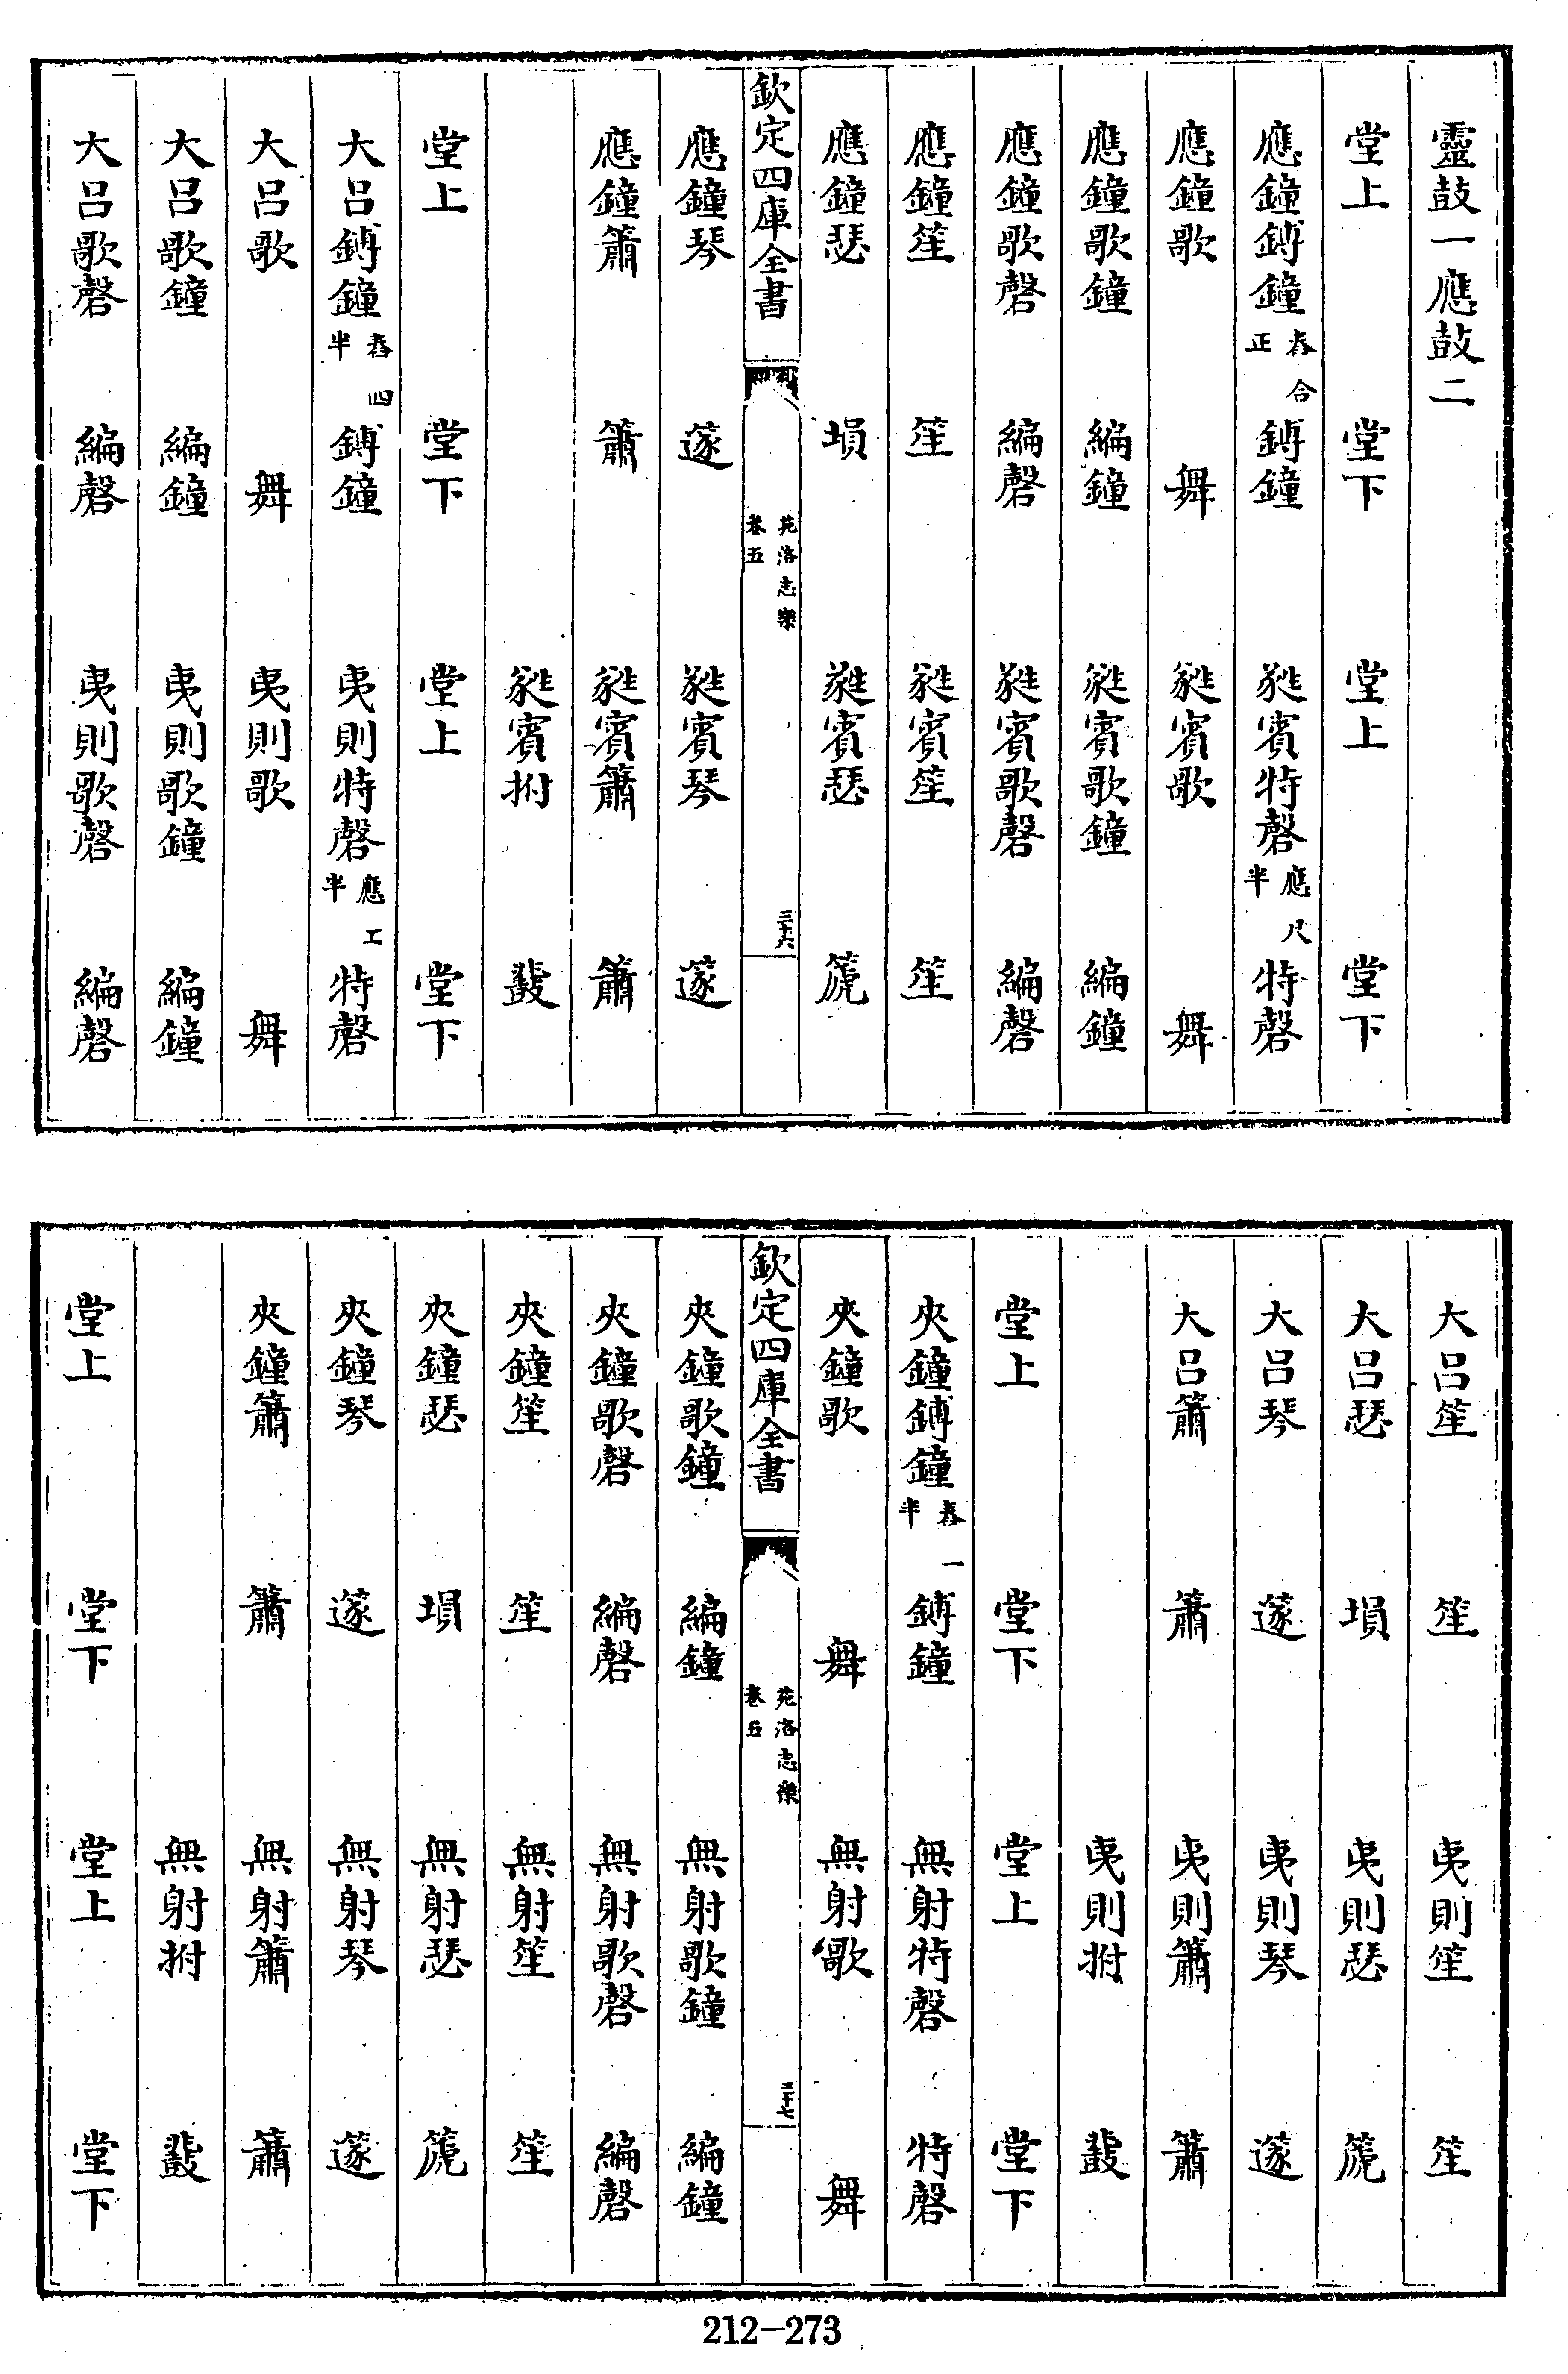 靈鼓一應鼓二
堂上　堂下　堂上　堂下
應鐘鎛鐘舂合正　鎛鐘　蕤賓特磬應尺半　特磬
應鐘歌　舞　蕤賓歌　舞
應鐘歌鐘　編鐘　蕤賓歌鐘　編鐘
應鐘歌磬　編磬　蕤賓歌磬　編磬
應鐘笙　笙　蕤賓笙　笙
應鐘瑟　塤　蕤賓瑟　箎
欽定四庫全書　苑洛志樂卷五　三十六
應鐘琴　篴　蕤賓琴　篴
應鐘簫　簫　蕤賓簫　簫
蕤賓拊　鼗
堂上　堂下　堂上　堂下
大呂鎛鐘舂四半　鎛鐘　夷則特磬應工半　特磬
大呂歌　舞　夷則歌　舞
大呂歌鐘　編鐘　夷則歌鐘　編鐘
大呂歌磬　編磬　夷則歌磬　編磬
大呂笙　笙　夷則笙　笙
大呂瑟　塤　夷則瑟　箎
大呂琴　篴　夷則琴　篴
大呂簫　簫　夷則簫　簫
夷則拊　鼗
堂上　堂下　堂上　堂下
夾鐘鎛鐘舂一半　鎛鐘　無射特磬　特磬
夾鐘歌　舞　無射歌　舞
欽定四庫全書　苑洛志樂卷五　三十七
夾鐘歌鐘　編鐘　無射歌鐘　編鐘
夾鐘歌磬　編磬　無射歌磬　編磬
夾鐘笙　笙　無射笙　笙
夾鐘瑟　塤　無射瑟　箎
夾鐘琴　篴　無射琴　篴
夾鐘簫　簫　無射簫　簫
無射拊　鼗
堂上　堂下　堂上　堂下
212-273